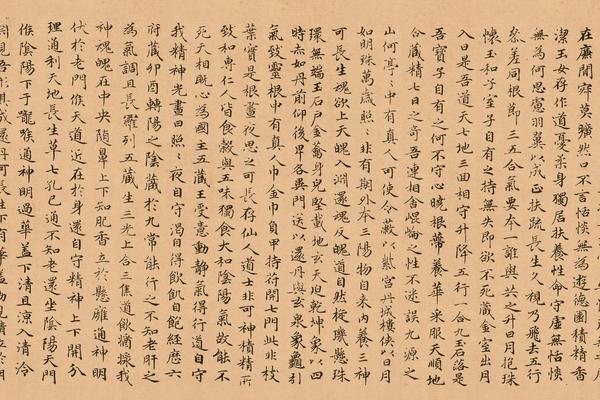 在廉閒寂莫曠然口不言恬惔無為遊德園積精香
潔玉女存作道憂柔身獨居扶養性命守虛無恬惔
無為何思慮羽翼以成正扶疏長生久視乃飛去五行
叅差同根節三五合氣要本一誰與共之升日月抱珠
懷玉和子室子自有之持無失即欲不死藏金室出月
入日是吾道天七地三回相守升降五行一合九玉石落是
吾寶子自有之何不守心曉根蔕養華采服天順地
合藏精七日之奇吾連相舍崐崘之性不迷誤九源之
山何亭〻中有真人可使令蔽以紫宮丹城樓俠以日月
如明珠萬歲照〻非有期外本三陽物自来內養三神
可長生魂欲上天魄入淵還魂反魄道自然璇璣懸珠
環無端玉石戶金籥身完堅載地玄天迫乾坤象以四
時赤如丹前仰後卑各異門送以還丹與玄泉象龜引
氣致靈根中有真人巾金巾負甲持符開七門此非枝
葉實是根晝夜思之可長存仙人道士非可神積精所
致和專仁人皆食穀與五味獨食大和陰陽氣故能不
死天相既心為國主五藏王受意動靜氣得行道自守
我精神光晝日照〻夜自守渴自得飲飢自飽經歷六
府藏卯酉轉陽之陰藏於九常能行之不知老肝之
為氣調且長羅列五藏生三光上合三焦道飲漿我
神魂魄在中央隨鼻上下知肥香立於懸廱通神明
伏於老門候天道近在於身還自守精神上下開分
理通利天地長生草七孔已通不知老還坐陰陽天門
候陰陽下于嚨喉通神明過華蓋下清且涼入清泠
淵見吾形其成還丹可長生下有華蓋動見精立於明